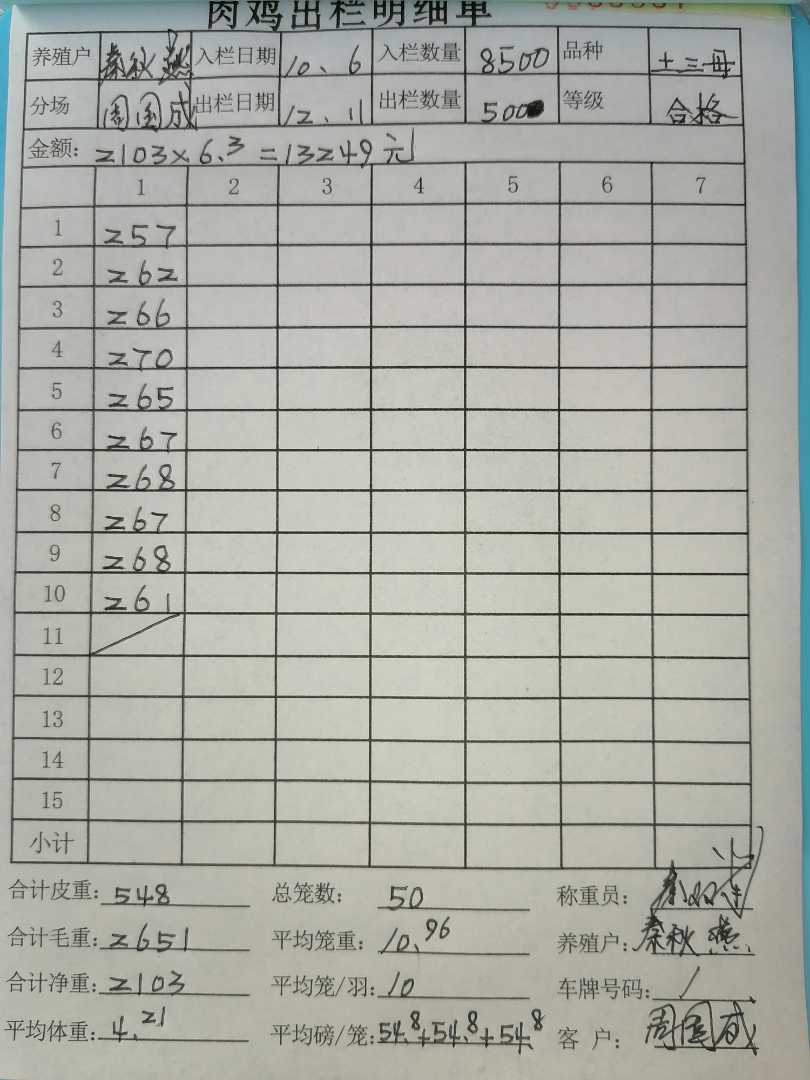 肉鸡出栏明细单
养殖户 秦秋燕 入栏日期 10、6 入栏数量 8500 品种 土三黄
分场 周国成 出栏日期 12、11 出栏数量 500 等级 合格
金额: 2103×6.3=13249元
1 2 3 4 5 6 7
1 257
2 262
3 266
4 270
5 265
6 267
7 268
8 267
9 268
10 261
11
12
13
14
15
小计
合计皮重: 548 总笼数: 50 称重员:
合计毛重: 2651 平均笼重: 10.96 养殖户: 秦秋燕
合计净重: 2103 平均笼/羽: 10 车牌号码: /
平均体重: 4.21 平均磅/笼: 54.8+54.8+54.8 客 户: 周国成